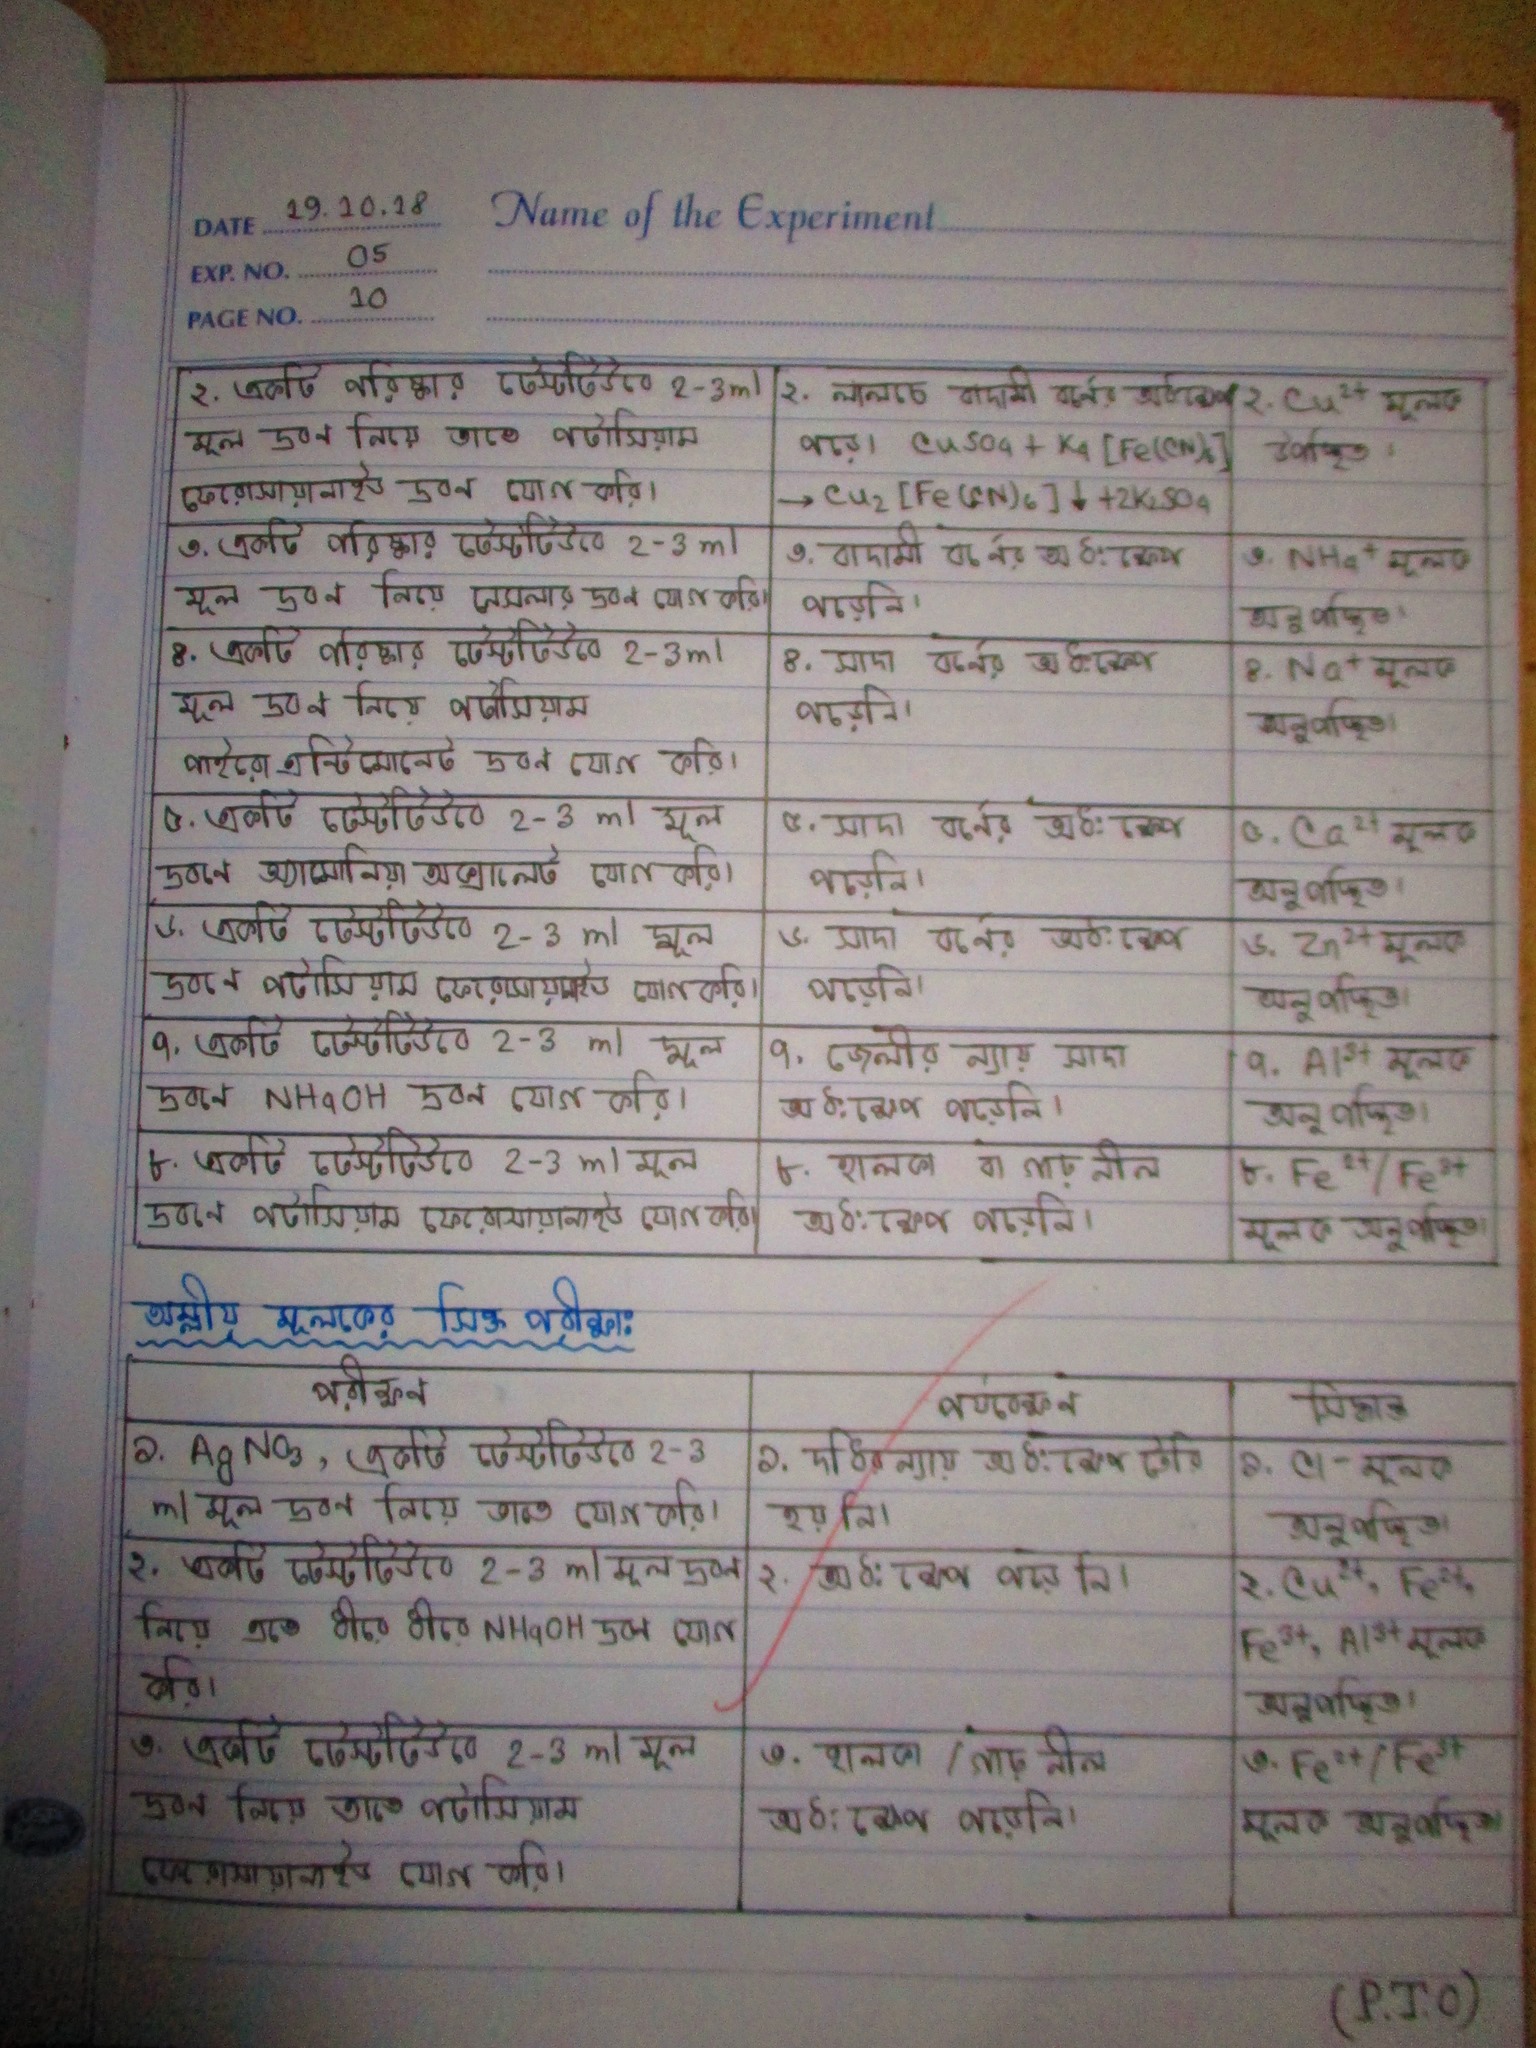 DATE 19.10.18
Name of the Experiment
EXP. NO. 05
PAGE NO. 10
২. একটি পরিষ্কার টেস্টটিউবে 2-3 ml
মূল দ্রবণ নিয়ে তাতে পটাসিয়াম
ফেরোসায়ানাইড দ্রবণ যোগ করি।
২. লালচে বাদামী বর্নের অধঃক্ষেপ
পরে। CuSO4 + K4 [Fe(CN)6]
→ Cu2 [Fe(CN)6]↓ +2K2SO4
২. Cu2+ মূলক
উপস্থিত।
৩. একটি পরিষ্কার টেস্টটিউবে 2-3 ml
মূল দ্রবণ নিয়ে নেসলার দ্রবণ যোগ করি।
৩. বাদামী বর্নের অধঃক্ষেপ
পড়েনি।
৩. NH4+ মূলক
অনুপস্থিত।
৪. একটি পরিষ্কার টেস্টটিউবে 2-3 ml
মূল দ্রবণ নিয়ে পটাসিয়াম
পাইরো এন্টিমোনেট দ্রবণ যোগ করি।
৪. সাদা বর্নের অধঃক্ষেপ
পড়েনি।
৪. Na+ মূলক
অনুপস্থিত।
৫. একটি টেস্টটিউবে 2-3 ml মূল
দ্রবণে অ্যামোনিয়া অক্সালেট যোগ করি।
৫. সাদা বর্নের অধঃক্ষেপ
পড়েনি।
৫. Ca2+ মূলক
অনুপস্থিত।
৬. একটি টেস্টটিউবে 2-3 ml মূল
দ্রবণে পটাসিয়াম ফেরোসায়ানাইড যোগ করি।
৬. সাদা বর্নের অধঃক্ষেপ
পড়েনি।
৬. Zn2+ মূলক
অনুপস্থিত।
৭. একটি টেস্টটিউবে 2-3 ml মূল
দ্রবণে NH4OH দ্রবণ যোগ করি।
৭. জেলীর ন্যায় সাদা
অধঃক্ষেপ পড়েনি।
৭. Al3+ মূলক
অনুপস্থিত।
৮. একটি টেস্টটিউবে 2-3 ml মূল
দ্রবণে পটাসিয়াম ফেরোসায়ানাইড যোগ করি।
৮. হালকা বা গাঢ় নীল
অধঃক্ষেপ পড়েনি।
৮. Fe2+/Fe3+
মূলক অনুপস্থিত।
অম্লীয় মূলকের সিক্ত পরীক্ষাঃ
পরীক্ষণ
পর্যবেক্ষণ
সিদ্ধান্ত
১. AgNO3, একটি টেস্টটিউবে 2-3
ml মূল দ্রবণ নিয়ে তাতে যোগ করি।
১. দধির ন্যায় অধঃক্ষেপ তৈরি
হয় নি।
১. Cl- মূলক
অনুপস্থিত।
২. একটি টেস্টটিউবে 2-3 ml মূল দ্রবণ
নিয়ে এতে ধীরে ধীরে NH4OH দ্রবণ যোগ
করি।
২. অধঃক্ষেপ পরে নি।
২. Cu2+, Fe2+,
Fe3+, Al3+ মূলক
অনুপস্থিত।
৩. একটি টেস্টটিউবে 2-3 ml মূল
দ্রবণ নিয়ে তাতে পটাসিয়াম
ফেরোসায়ানাইড যোগ করি।
৩. হালকা / গাঢ় নীল
অধঃক্ষেপ পড়েনি।
৩. Fe2+/Fe3+
মূলক অনুপস্থিত
(P.T.O)